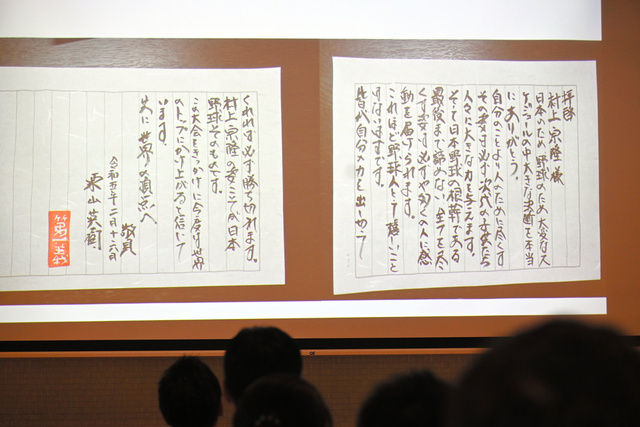 拝啓
村上宗隆様
日本のため、野球のため、大変なス
ケジュールの中大きな決断を本当
にありがとう。
自分のことより人のために尽くす
その姿は必ず次代の子供たち
人々に大きな力を与えます。
そして日本野球の根幹である
最後まで諦めない、全力を尽
くす姿は必ずや多くの人に感
動を届けられます。
これほど野球人として嬉しいこと
はないはずです。
皆が自分の力を出し切って
くれれば必ず勝ち切れます。
村上宗隆の姿こそが日本
野球そのものです。
この大会をきっかけに今度は世界
のトップにかけ上がると信じて
います。
共に世界の頂点へ
敬具
令和五年二月十六日
栗山英樹